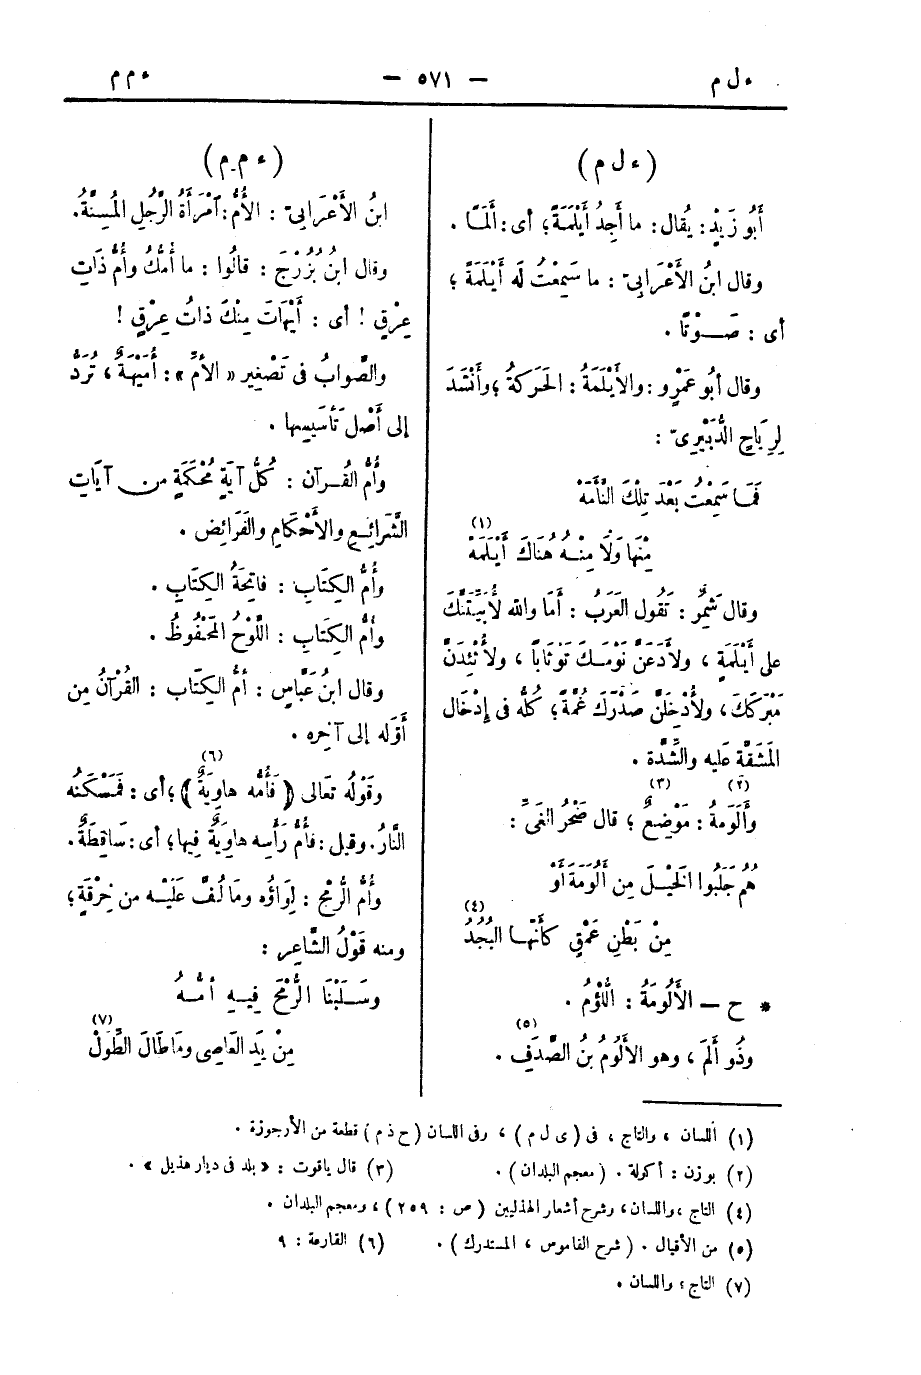 ء ل م — ٥٧١ — ء م م
( ء ل م )
أَبُو زَيْدٍ: يُقال: ما أَجِدُ أَيْلَمَةً؛ أى: أَلَمًا .
وقال ابنُ الأَعْرابِىّ : ما سَمِعْتُ لَه أَيْلَمَةً ؛
أى : صَوْتًا .
وقال أبُو عَمْرٍو : والأَيْلَمَةُ : الحَرَكةُ ؛ وأَنْشَدَ
لِرِيَاحٍ الدُّبَيْرِىّ :
فَمَا سَمِعْتُ بَعْدَ تِلْكَ النَّأَمَهْ
مِنْهَا وَلَا مِنْهُ هُنَاكَ أَيْلَمَهْ (١)
وقال شَمِرٌ : تَقُول العَرَبُ : أَمَا والله لأُبَيِّتَنَّكَ
على أَيْلَمَةٍ ، ولأَدَعَنَّ نَوْمَكَ تَوْثَاباً ، ولأُثْئِدَنَّ
مَبْرَكَكَ ، ولأُدْخِلَنَّ صَدْرَكَ غُمَّةً ؛ كُلُّه فى إدْخَال
المَشَقَّة عَليه والشِّدَّة .
وأَلَومَةُ (٢) : مَوْضِعٌ (٣) ؛ قال صَخْرُ الغَىِّ :
هُمُ جَلَبُوا الخَيْلَ مِن أَلُومَةَ أَوْ
مِنْ بَطْنِ عَمْقٍ كأَنَّها البُجُدُ (٤)
* ح – الأَلُومَةُ : اللُّؤْمُ .
وذُو أَلَمَ ، وهو الأَلُومُ بنُ الصَّدَفِ (٥) .
( ء م م )
ابنُ الأَعْرَابىّ : الأُمُّ: آمْرَأَةُ الرَّجُلِ المُسِنَّةُ.
وقال ابنُ بُزُرْجَ : قالُوا : ما أُمُّكَ وأُمُّ ذَاتِ
عِرْقٍ ! أى : أَيْهَاتَ مِنْكَ ذاتُ عِرْقٍ !
والصَّوابُ فى تَصْغِير « الأمّ » : أُمَيْهَةٌ ، تُرَدُّ
إلى أَصْل تَأسَيسِها .
وأُمُّ القُرآن : كُلُّ آيَةٍ مُحْكَمَةٍ من آيَاتِ
الشَّرائِعِ والأَحْكامِ والفَرائِض .
وأُمُّ الكِتَابِ : فاتِحَةُ الكِتَابِ .
وأُمُّ الكِتَابِ : اللَّوْحُ المَحْفُوظُ .
وقال ابنُ عَبَّاسٍ : أمُّ الكِتَّاب : القُرْآنُ مِن
أَوّلِه إلى آخِرِه .
وقَوْلُه تَعالى ( فَأُمُّه هاوِيَةٌ ) (٦) ؛ أى : فَمَسْكَنُه
النَّارُ. وقيل : فأُمُّ رَأْسِه هاوِيَةٌ فِيها ؛ أى : سَاقِطَةٌ.
وأُمُّ الرُّمْحِ : لِوَاؤُه وما لُفَّ عَلَيْه من خِرْقَةٍ ؛
ومنه قَوْلُ الشَّاعِرِ :
وسَلَبْنَا الرُّمْحَ فِيهِ أُمُّهُ
مِنْ يَدِ العَاصِى ومَا طَالَ الطِّوَلْ (٧)
(١) اللسان ، والتاج ، فى ( ى ل م ) ، وفى اللسان ( ح ذ م ) قطعة من الأرجوزة .
(٢) بوزن : أكولة . ( معجم البلدان ) . (٣) قال ياقوت : « بلد فى ديار هذيل » .
(٤) التاج ، واللسان ، وشرح أشعار الهذليين ( ص : ٢٥٩ ) ، ومعجم البلدان .
(٥) من الأقيال . ( شرح القاموس ، المستدرك ) . (٦) القارعة : ٩
(٧) التاج ؛ واللسان .